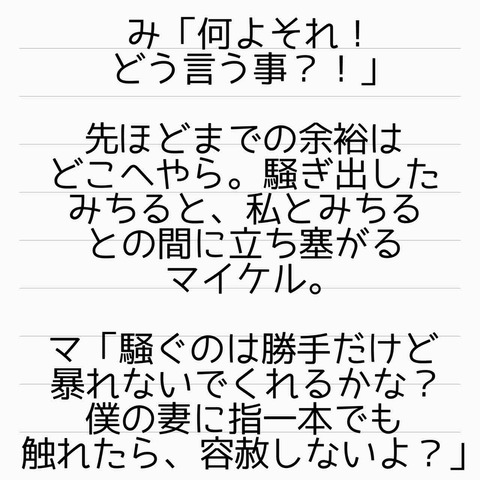 み「何よそれ！
どう言う事？！」
先ほどまでの余裕は
どこへやら。騒ぎ出した
みちると、私とみちる
との間に立ち塞がる
マイケル。
マ「騒ぐのは勝手だけど
暴れないでくれるかな？
僕の妻に指一本でも
触れたら、容赦しないよ？」